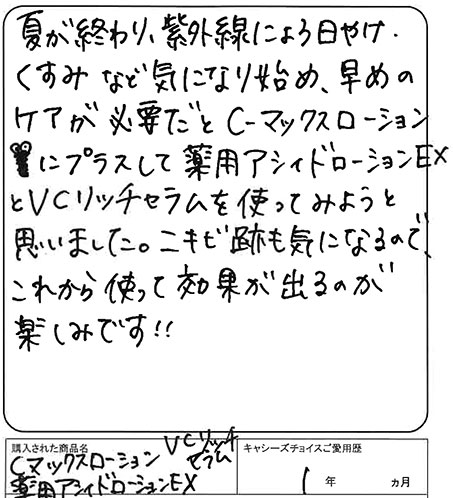 夏が終わり、紫外線による日やけ・
くすみなど気になり始め、早めの
ケアが必要だとC-マックスローション
にプラスして薬用アシィドローションEX
とVCリッチセラムを使ってみようと
思いました。ニキビ跡も気になるので、
これから使って効果が出るのが
楽しみです!!
購入された商品名
VCリッチ
セラム
Cマックスローション
薬用アシィドローションEX
キャシーズチョイスご愛用歴
1年 ヵ月